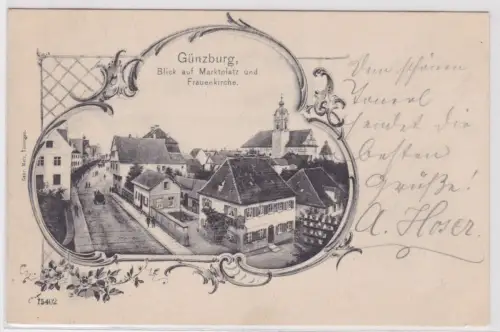 Günzburg,
Blick auf Marktplatz und
Frauenkirche.
Vom schönen
sendet die
besten
Grüße!
A. Hoser.
15402